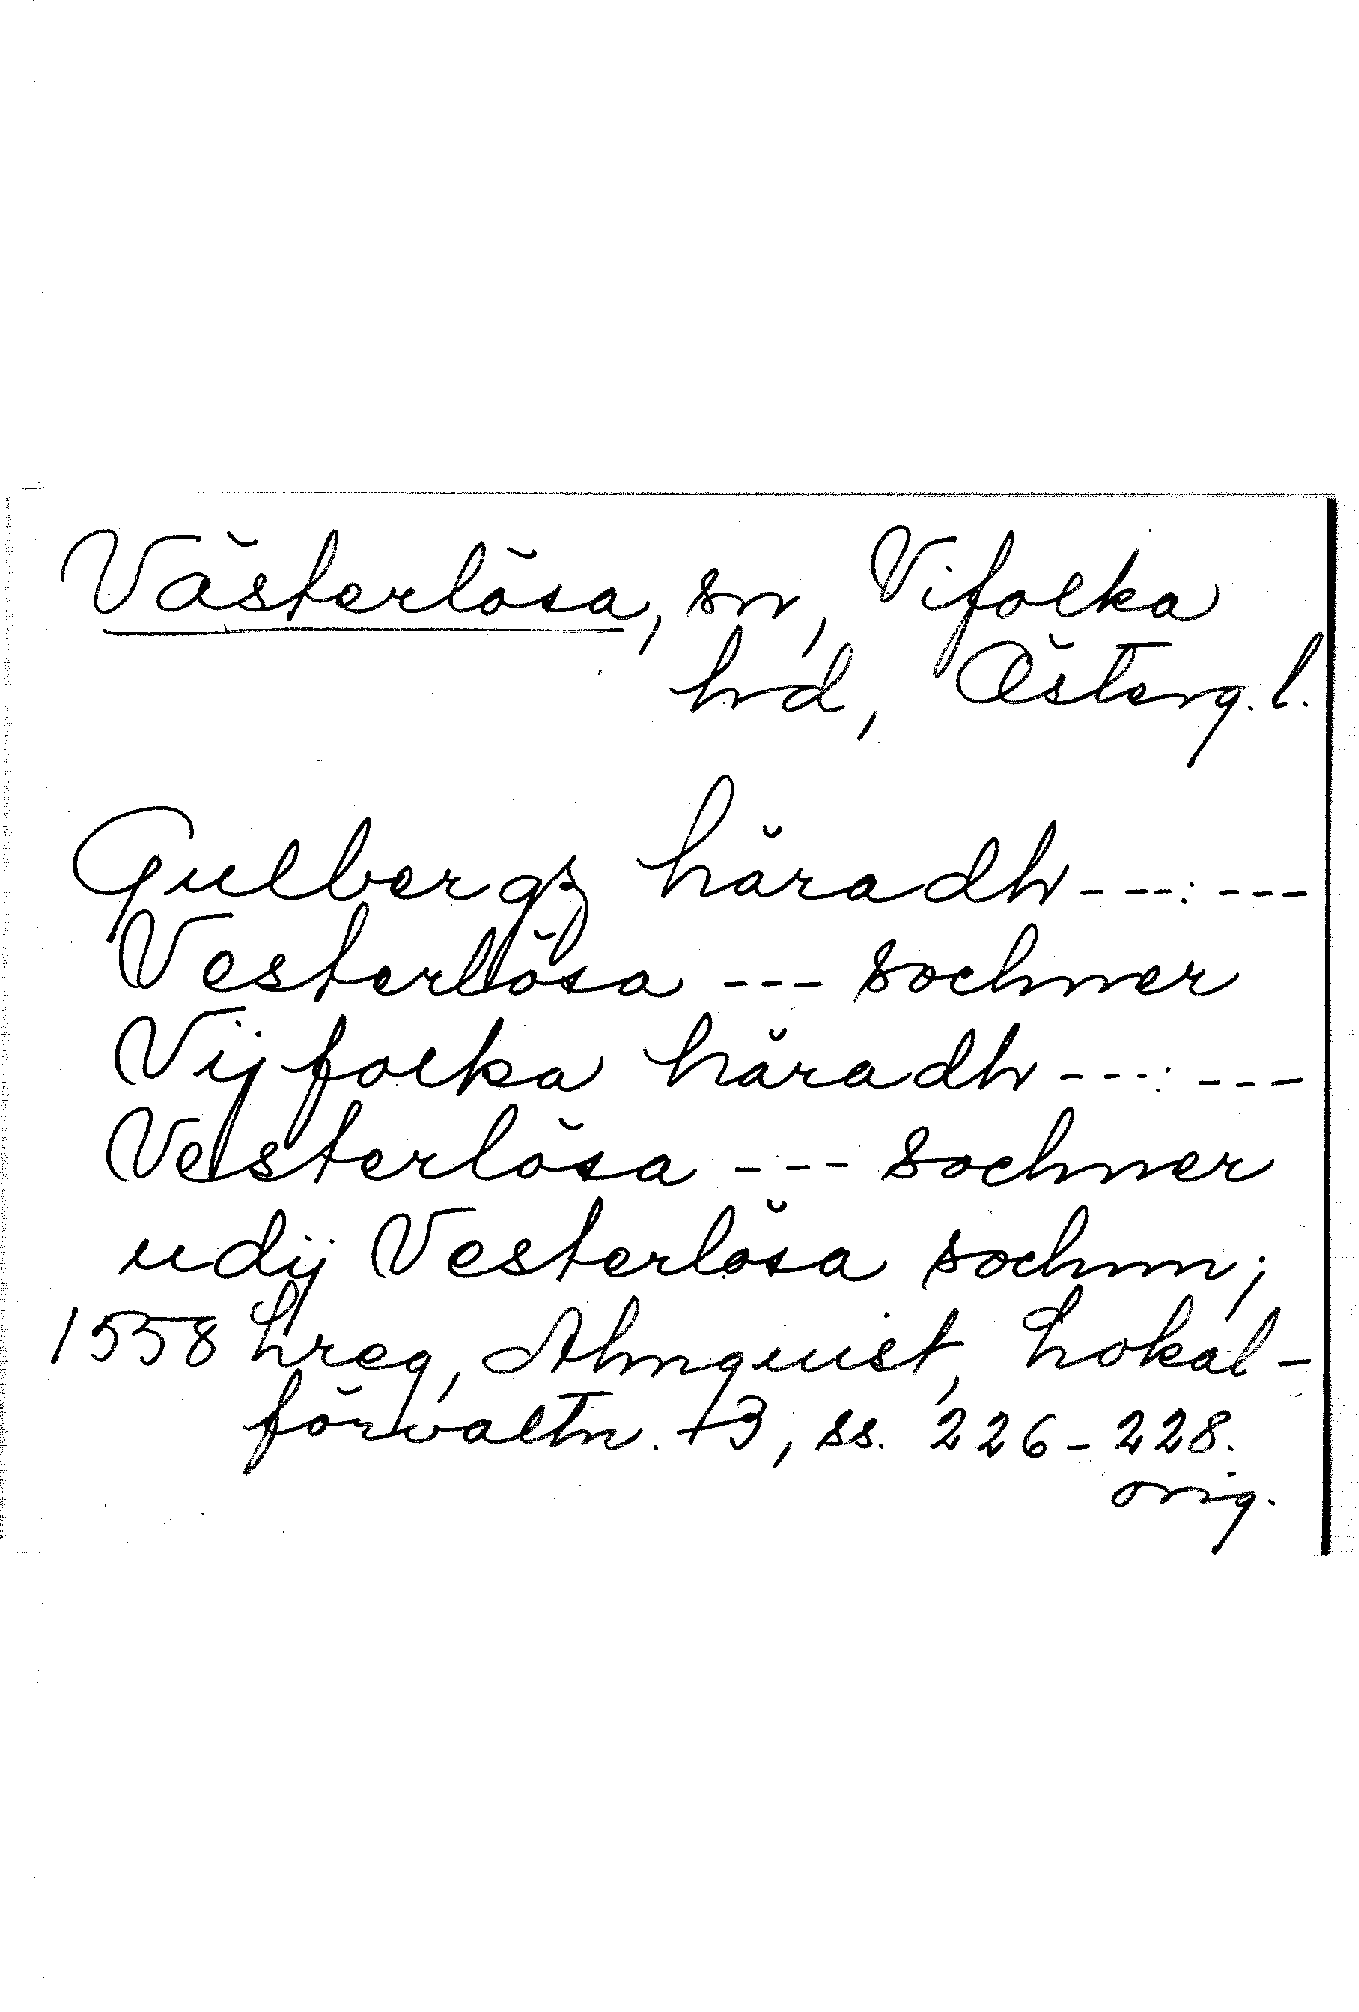 Västerlösa, sn, Vifolka
hrd, Österg. l.
Gulbergz häradh - - - : - - -
Vesterlösa - - - sochner
Vijfolka häradh - - - : - - -
Vesterlösa - - - sochner
udij Vesterlösa sochnn;
1558 Lreg, Almquist, Lokal-
förvaltn. +3, ss. 226-228.
orig.